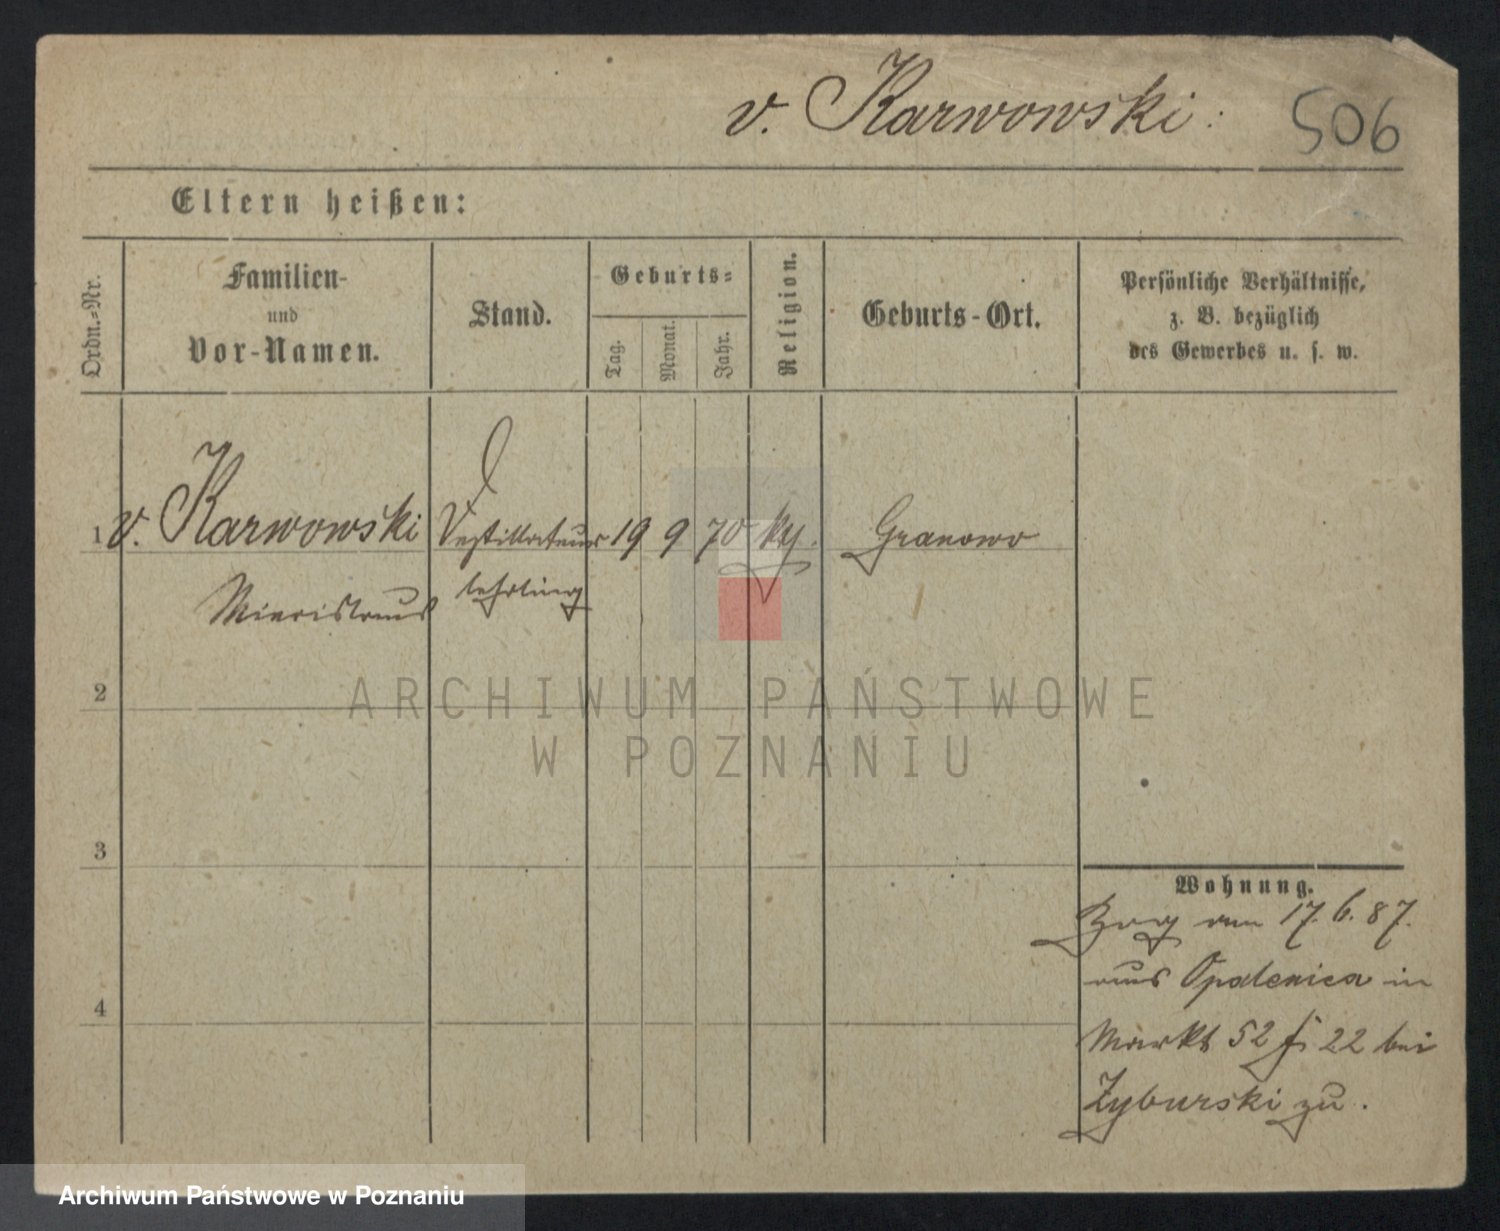 v. Karwowski.
506
Eltern heißen:
Ordn.-Nr.
Familien-
und
Vor-Namen.
Stand.
Geburts-
Tag.
Monat.
Jahr.
Religion.
Geburts-Ort.
Persönliche Verhältnisse,
z. B. bezüglich
des Gewerbes u. s. w.
1 v. Karwowski Destillateur 19 9 70 Granowo
lehrling
2
ARCHIWUM PAŃSTWOWE
W POZNANIU
3
Wohnung.
Zog am 17.6.87.
aus Opalenica in
4
Markt 52 22 bei
Zyburski zu.
Archiwum Państwowe w Poznaniu